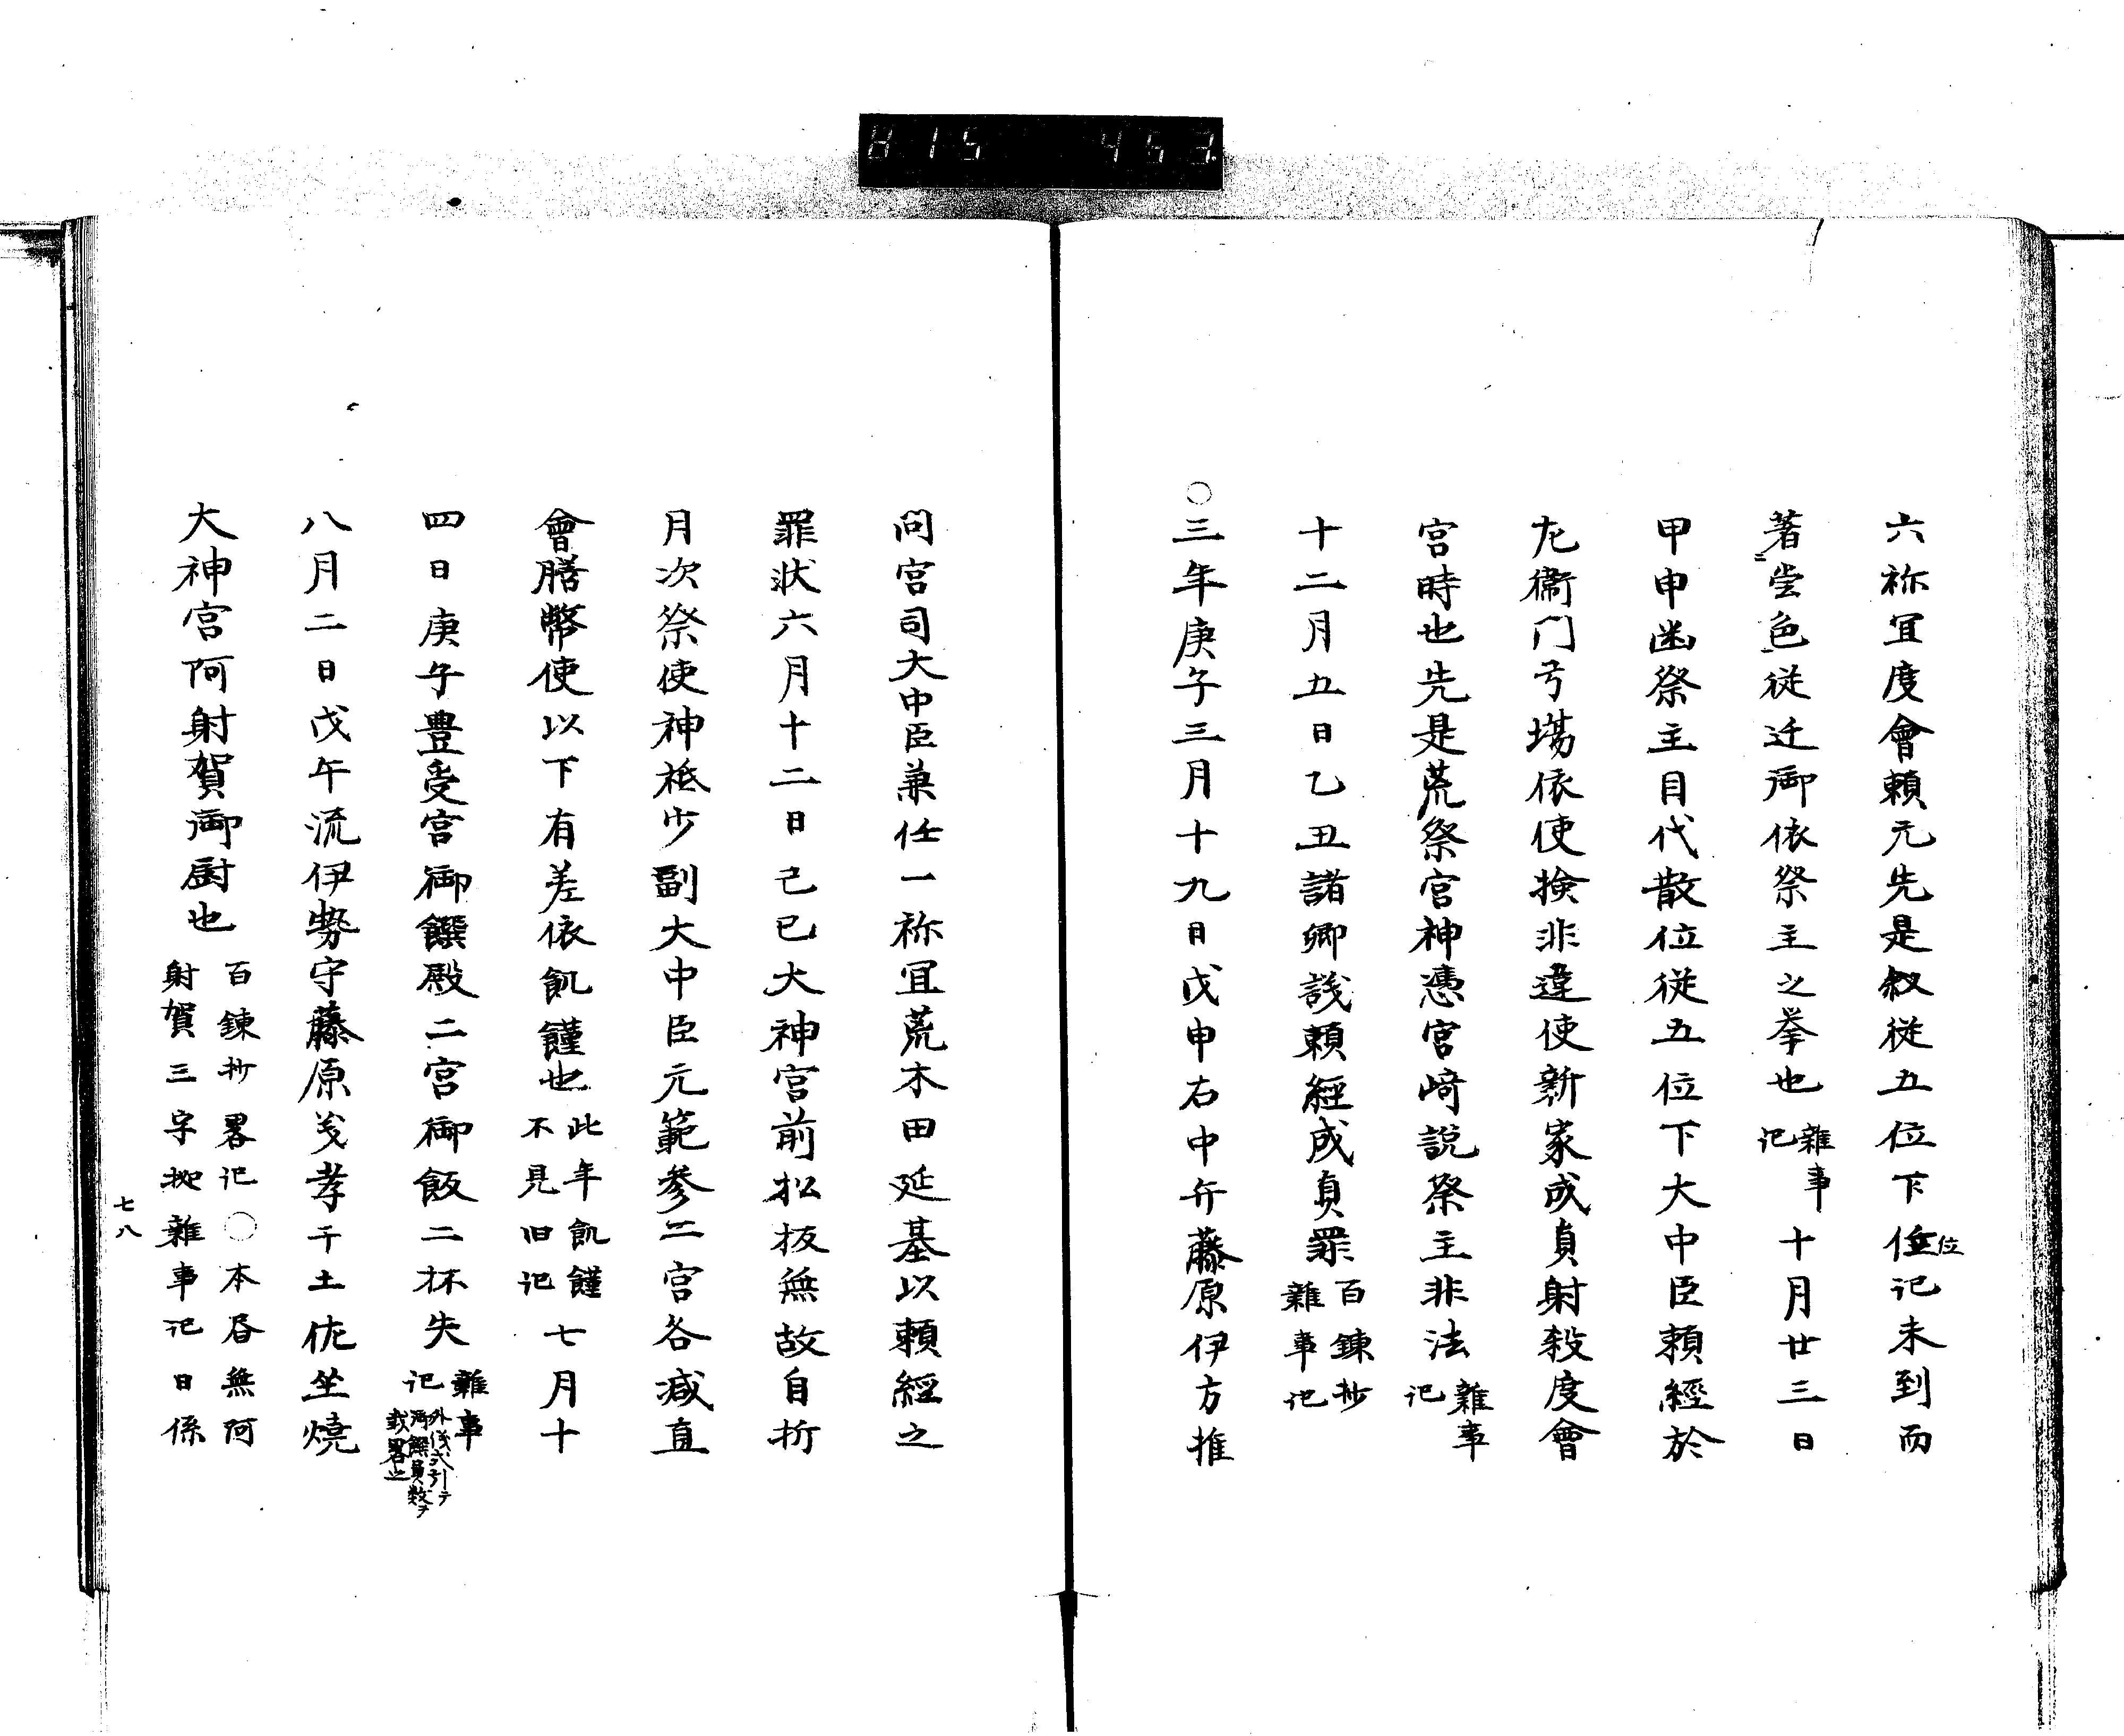 815 453
六祢冝度會頼元先是叙従五位下位記未到而
位
著當色従迁御依祭主之挙也雜事記十月廿三日
甲申凶祭主目代散位従五位下大中臣頼經於
左衞門弓場依使撿非違使新家成貞射殺度會
宮時也先是荒祭宮神憑宮﨑説祭主非法雜事記
十二月五日乙丑諸卿議頼經成貞罪百錬抄雜事記
○三年庚午三月十九日戊申右中弁藤原伊方推
問宮司大中臣兼任一祢冝荒木田延基以頼經之
罪状六月十二日己巳大神宮前松扳無故自折
月次祭使神祗少副大中臣元範参二宮各減直
會膳幣使以下有差依飢饉也此年飢饉不見旧記七月十
四日庚子豊受宮御饌殿二宮御飯二杯失雜事記
外儀式引テ御饌員数ヲ載畧之
八月二日戊午流伊勢守藤原義孝于土佐坐燒
大神宮阿射賀御厨也百錬抄畧記○本各無阿射賀三字拠雜事記日係
七八